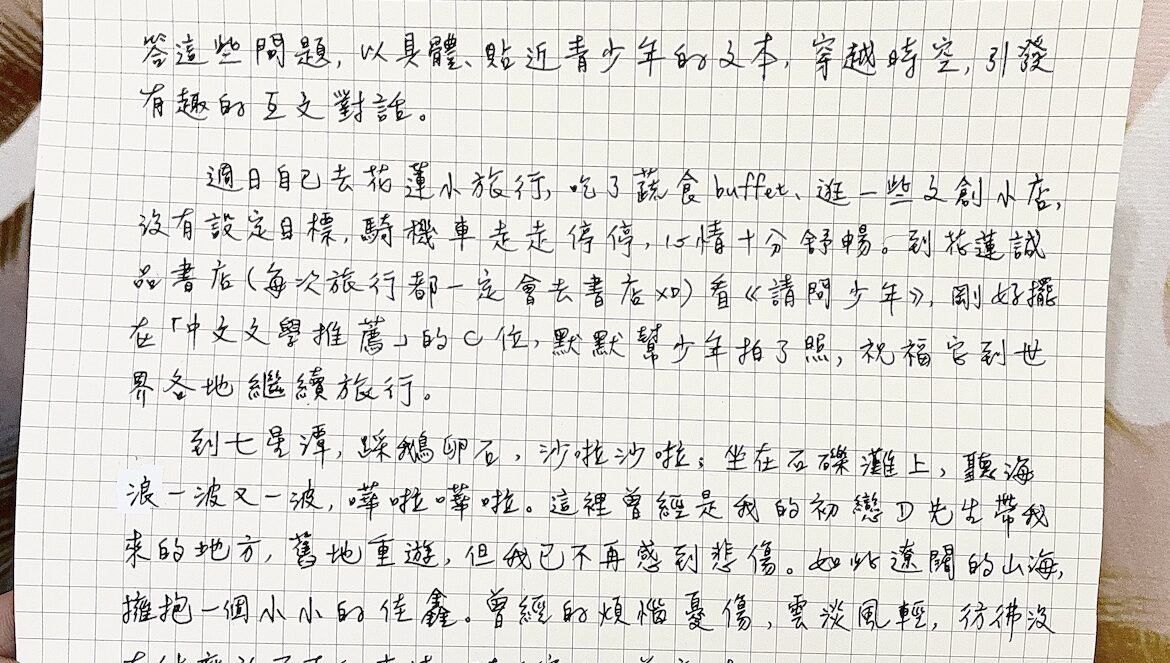 答這些問題，以具體、貼近青少年的文本，穿越時空，引發
有趣的互文對話。
週日自己去花蓮小旅行，吃了蔬食buffet、逛一些文創小店，
沒有設定目標，騎機車走走停停，心情十分舒暢。到花蓮誠
品書店(每次旅行都一定會去書店XD)看《請問少年》，剛好擺
在「中文文學推薦」的C位，默默幫少年拍了照，祝福它到世
界各地繼續旅行。
到七星潭，踩鵝卵石，沙啦沙啦；坐在石礫灘上，聽海
浪一波又一波，嘩啦嘩啦。這裡曾經是我的初戀D先生帶我
來的地方，舊地重遊，但我已不再感到悲傷。如此遼闊的山海，
擁抱一個小小的佳鑫。曾經的煩惱憂傷，雲淡風輕，彷彿沒